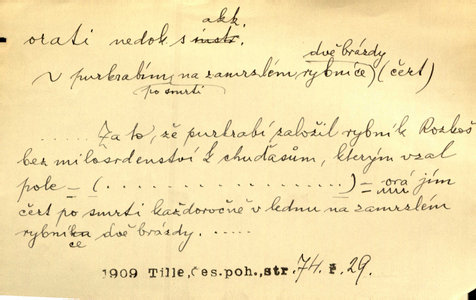 akk.
orati nedok s instr.
dvě brázdy
v purkrabím na zamrzlém rybníce (čert)
po smrti
...... Za to, že purkrabí založil rybník Rozkoš
bez milosrdenství k chudasům, kterým vzal
pole – (....................) = orá jím
mu
čert po smrti každoročně v lednu na zamrzlém
rybníka dvě brázdy. .....
ce
1909 Tille, Čes. poh., str. 74 ř. 29.